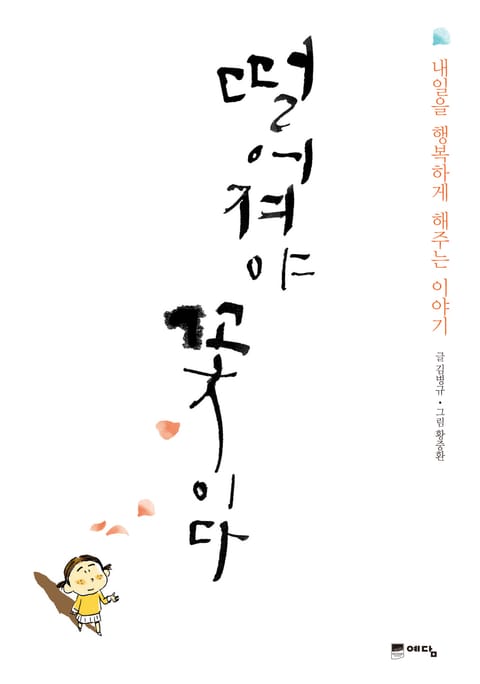 내일을 행복하게 해주는 이야기
글 김병규 • 그림 황중환
떨어져야 꽃이다
예담